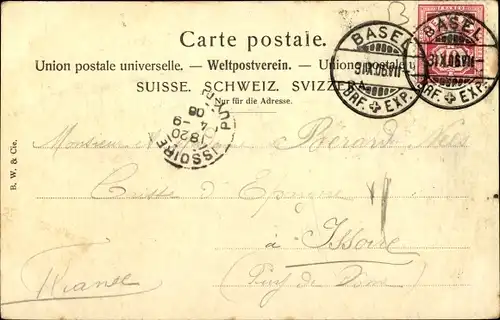 Carte postale.
Union postale universelle. — Weltpostverein. — Unione postale u
SUISSE. SCHWEIZ. SVIZZE
Nur für die Adresse.
BASEL
31.IX.06.VII
BRF. EXP.
BASEL
31.IX.06.VII
BRF. EXP.
B
ISSOIRE
1820
4 -9
06
PUY-DE-
R. W. & Cie.
Monsieur Bérard
Caisse d'Epargne
à Issoire
(Puy de Dôme)
France